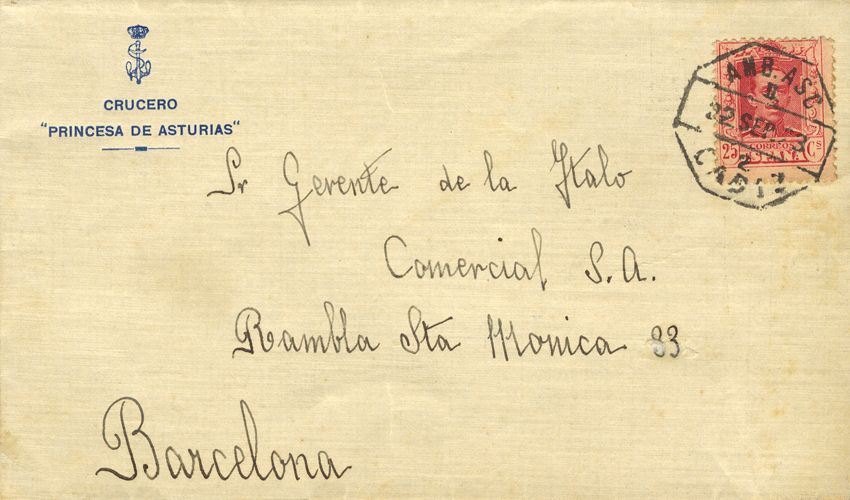 CRUCERO
"PRINCESA DE ASTURIAS"
AMB. ASC
22 SEP
2
CADIZ
25 CORREOS Cs
Sr Gerente de la Italo
Comercial S.A.
Rambla Sta Monica 83
Barcelona